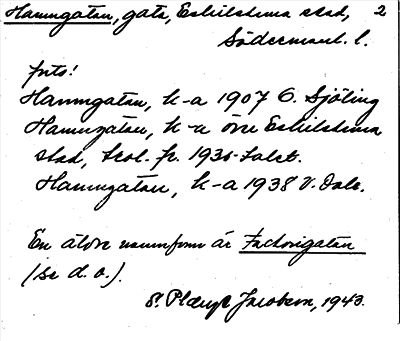 Hamngatan, gata, Eskilstuna stad, 2
Södermanl. l.
foto!
Hamngatan, k-a 1907 C. Sjöling
Hamngatan, k-a över Eskilstuna
stad, 1936
Hamngatan, k-a 1938 V. Dale.
En äldre namnform är Factorigatan
(se d. o.).
Jacobson, 1940.